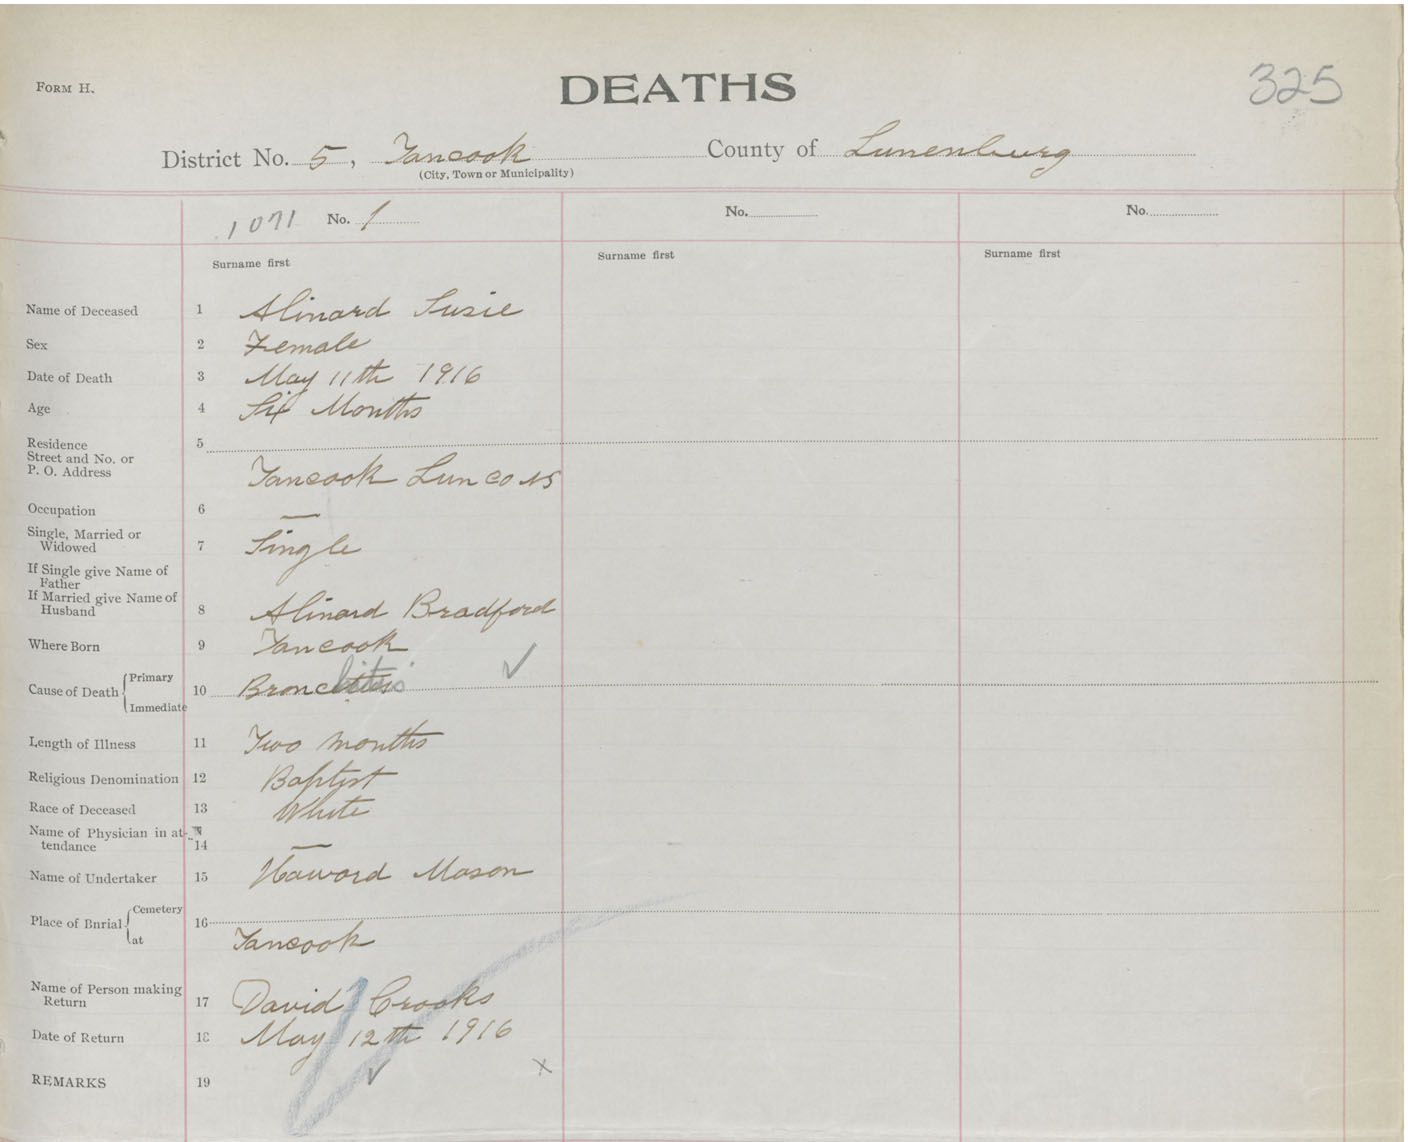 FORM H.
DEATHS
325
District No. 5, Tancook County of Lunenburg
(City, Town or Municipality)
1071 No. 1 No. No.
Surname first Surname first Surname first
Name of Deceased 1 Slinard Susie
Sex 2 Female
Date of Death 3 May 11th 1916
Age 4 Six Months
Residence 5
Street and No. or
P. O. Address Tancook Lun CO NS
Occupation 6 —
Single, Married or
Widowed 7 Single
If Single give Name of
Father
If Married give Name of
Husband 8 Slinard Bradford
Where Born 9 Tancook
Cause of Death { Primary
10 Broncitis
Immediate
Length of Illness 11 Two months
Religious Denomination 12 Baptist
Race of Deceased 13 White
Name of Physician in at-
tendance 14 —
Name of Undertaker 15 Howard Mason
Place of Bnrial { Cemetery 16
at Tancook
Name of Person making
Return 17 David Crooks
Date of Return 18 May 12th 1916
REMARKS 19